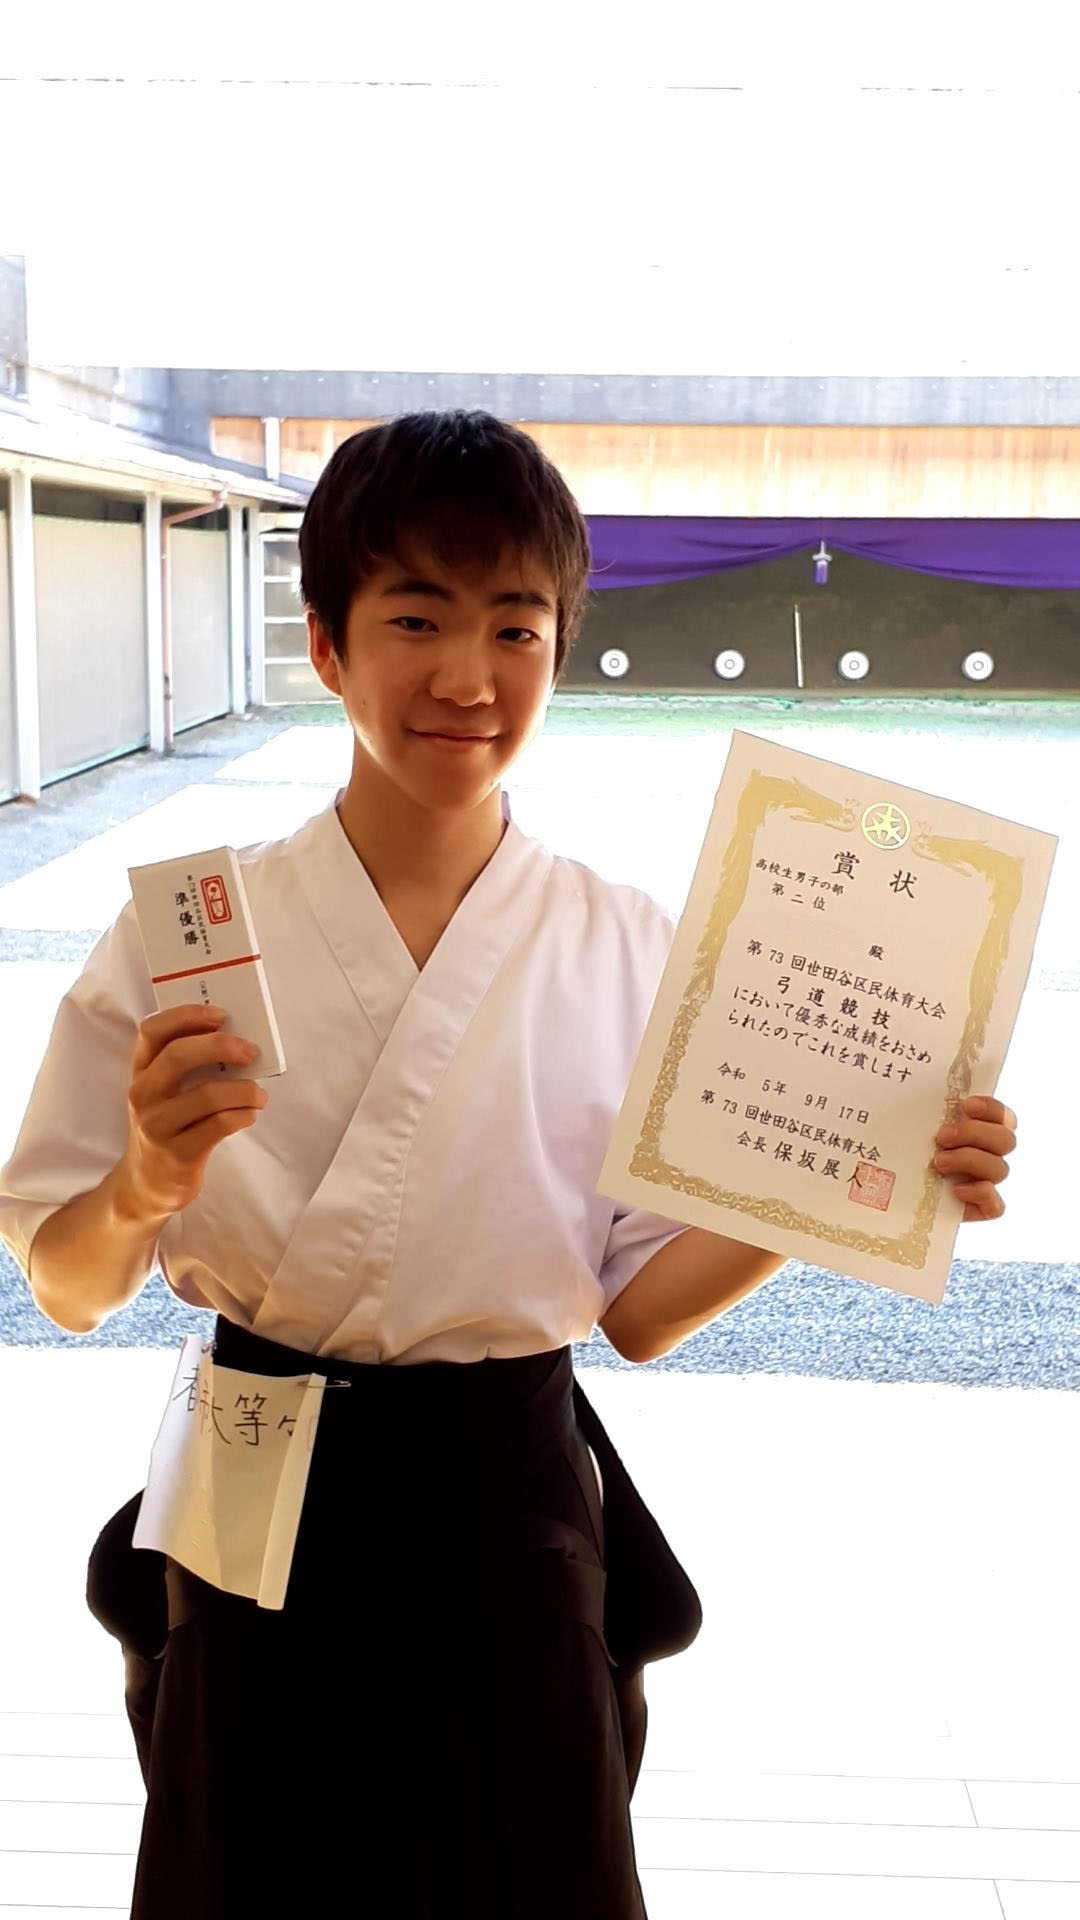 第73回世田谷区民体育大会
準優勝
賞状
高校生男子の部
第二位
殿
第 73 回世田谷区民体育大会
弓道競技
において優秀な成績をおさめ
られたのでこれを賞します
令和 5年 9月 17日
第 73 回世田谷区民体育大会
会長 保坂展人
大等々